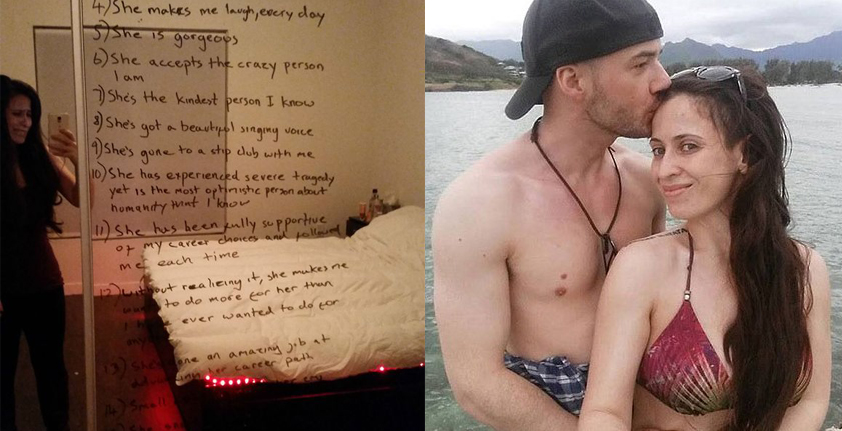 4) She makes me laugh, every day
5) She is gorgeous
6) She accepts the crazy person
I am
7) She's the kindest person I know
8) She's got a beautiful singing voice
9) She's gone to a strip club with me
10) She has experienced severe tragedy
yet is the most optimistic person about
humanity that I know
11) She has been fully supportive
of my career choices and followed
me each time
12) Without realizing it, she makes me
to do more for her than
I ever wanted to do for
13) She's one an amazing job at
her career path
her cry
14) Small